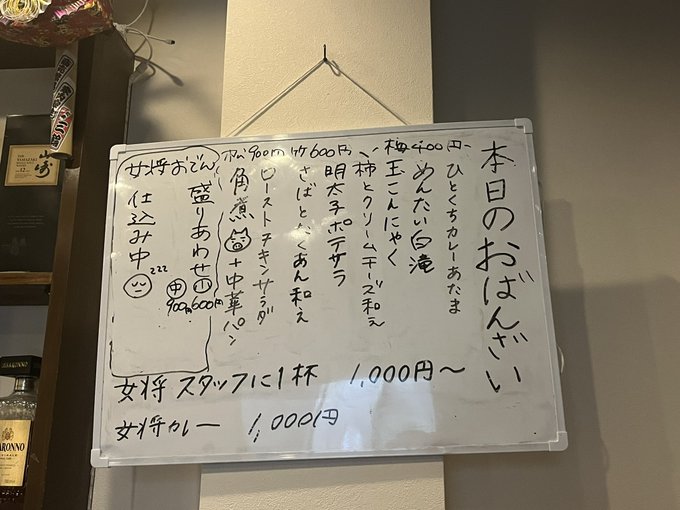 本日のおばんざい
梅400円
ひとくちカレーあたま
めんたい白滝
玉こんにゃく
竹600円
柿とクリームチーズ和え
明太子ポテサラ
さばとたくあん和え
松900円
ローストチキンサラダ
角煮 + 中華パン
女将おでん
盛りあわせ
小 600円
中 900円
仕込み中
zzz
女将 スタッフに1杯 1,000円〜
女将カレー 1,000円
山崎